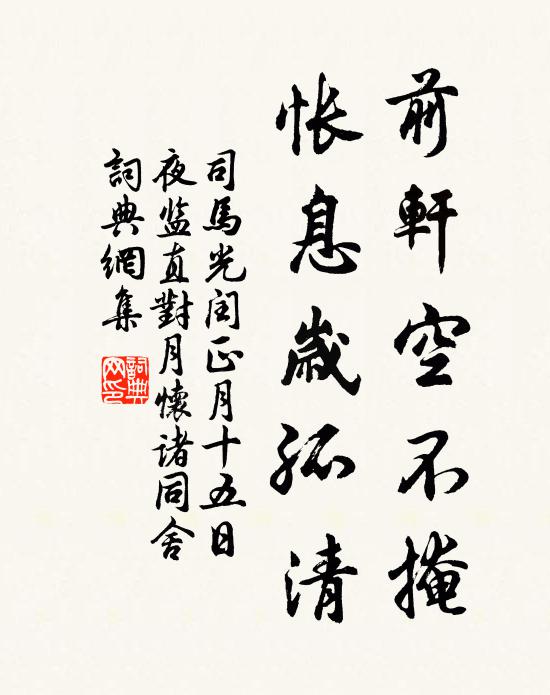 前軒空不掩
悵息歲孤清
司馬光閏正月十五日
夜监直對月懷诸同舍
詞典網集
詞典网印